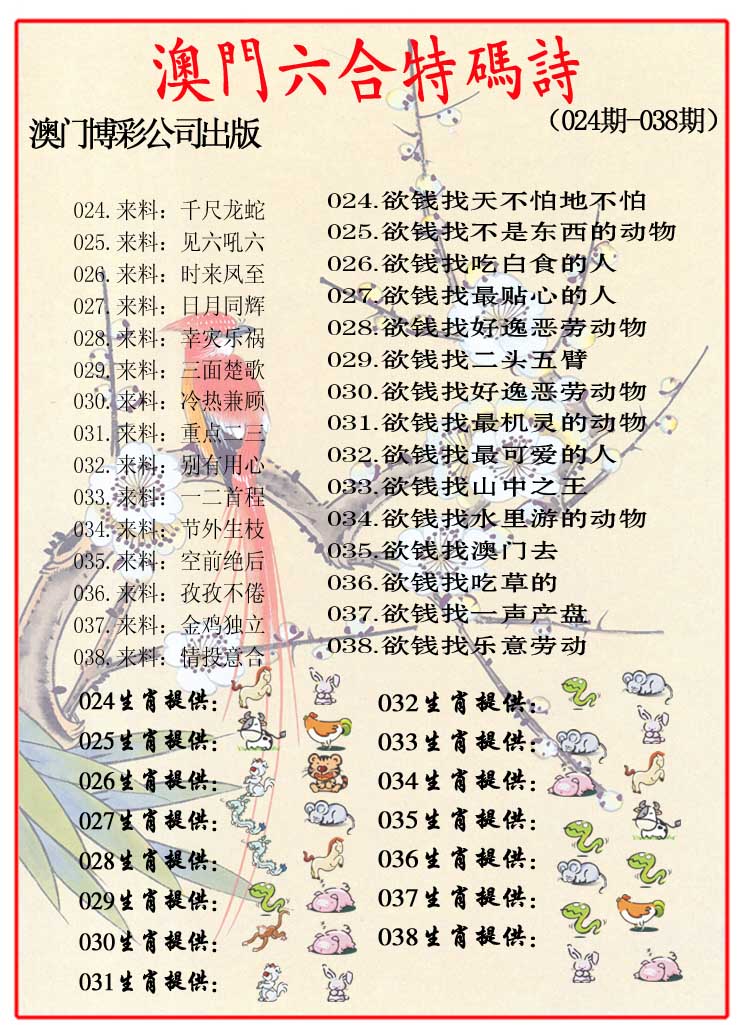 澳門六合特碼詩
澳门博彩公司出版
(024期-038期)
024.来料：千尺龙蛇
025.来料：见六吼六
026.来料：时来凤至
027.来料：日月同辉
028.来料：幸灾乐祸
029.来料：三面楚歌
030.来料：冷热兼顾
031.来料：重点二三
032.来料：别有用心
033.来料：一二首程
034.来料：节外生枝
035.来料：空前绝后
036.来料：孜孜不倦
037.来料：金鸡独立
038.来料：情投意合
024.欲钱找天不怕地不怕
025.欲钱找不是东西的动物
026.欲钱找吃白食的人
027.欲钱找最贴心的人
028.欲钱找好逸恶劳动物
029.欲钱找二头五臂
030.欲钱找好逸恶劳动物
031.欲钱找最机灵的动物
032.欲钱找最可爱的人
033.欲钱找山中之王
034.欲钱找水里游的动物
035.欲钱找澳门去
036.欲钱找吃草的
037.欲钱找一声产盘
038.欲钱找乐意劳动
024生肖提供：
025生肖提供：
026生肖提供：
027生肖提供：
028生肖提供：
029生肖提供：
030生肖提供：
031生肖提供：
032生肖提供：
033生肖提供：
034生肖提供：
035生肖提供：
036生肖提供：
037生肖提供：
038生肖提供：